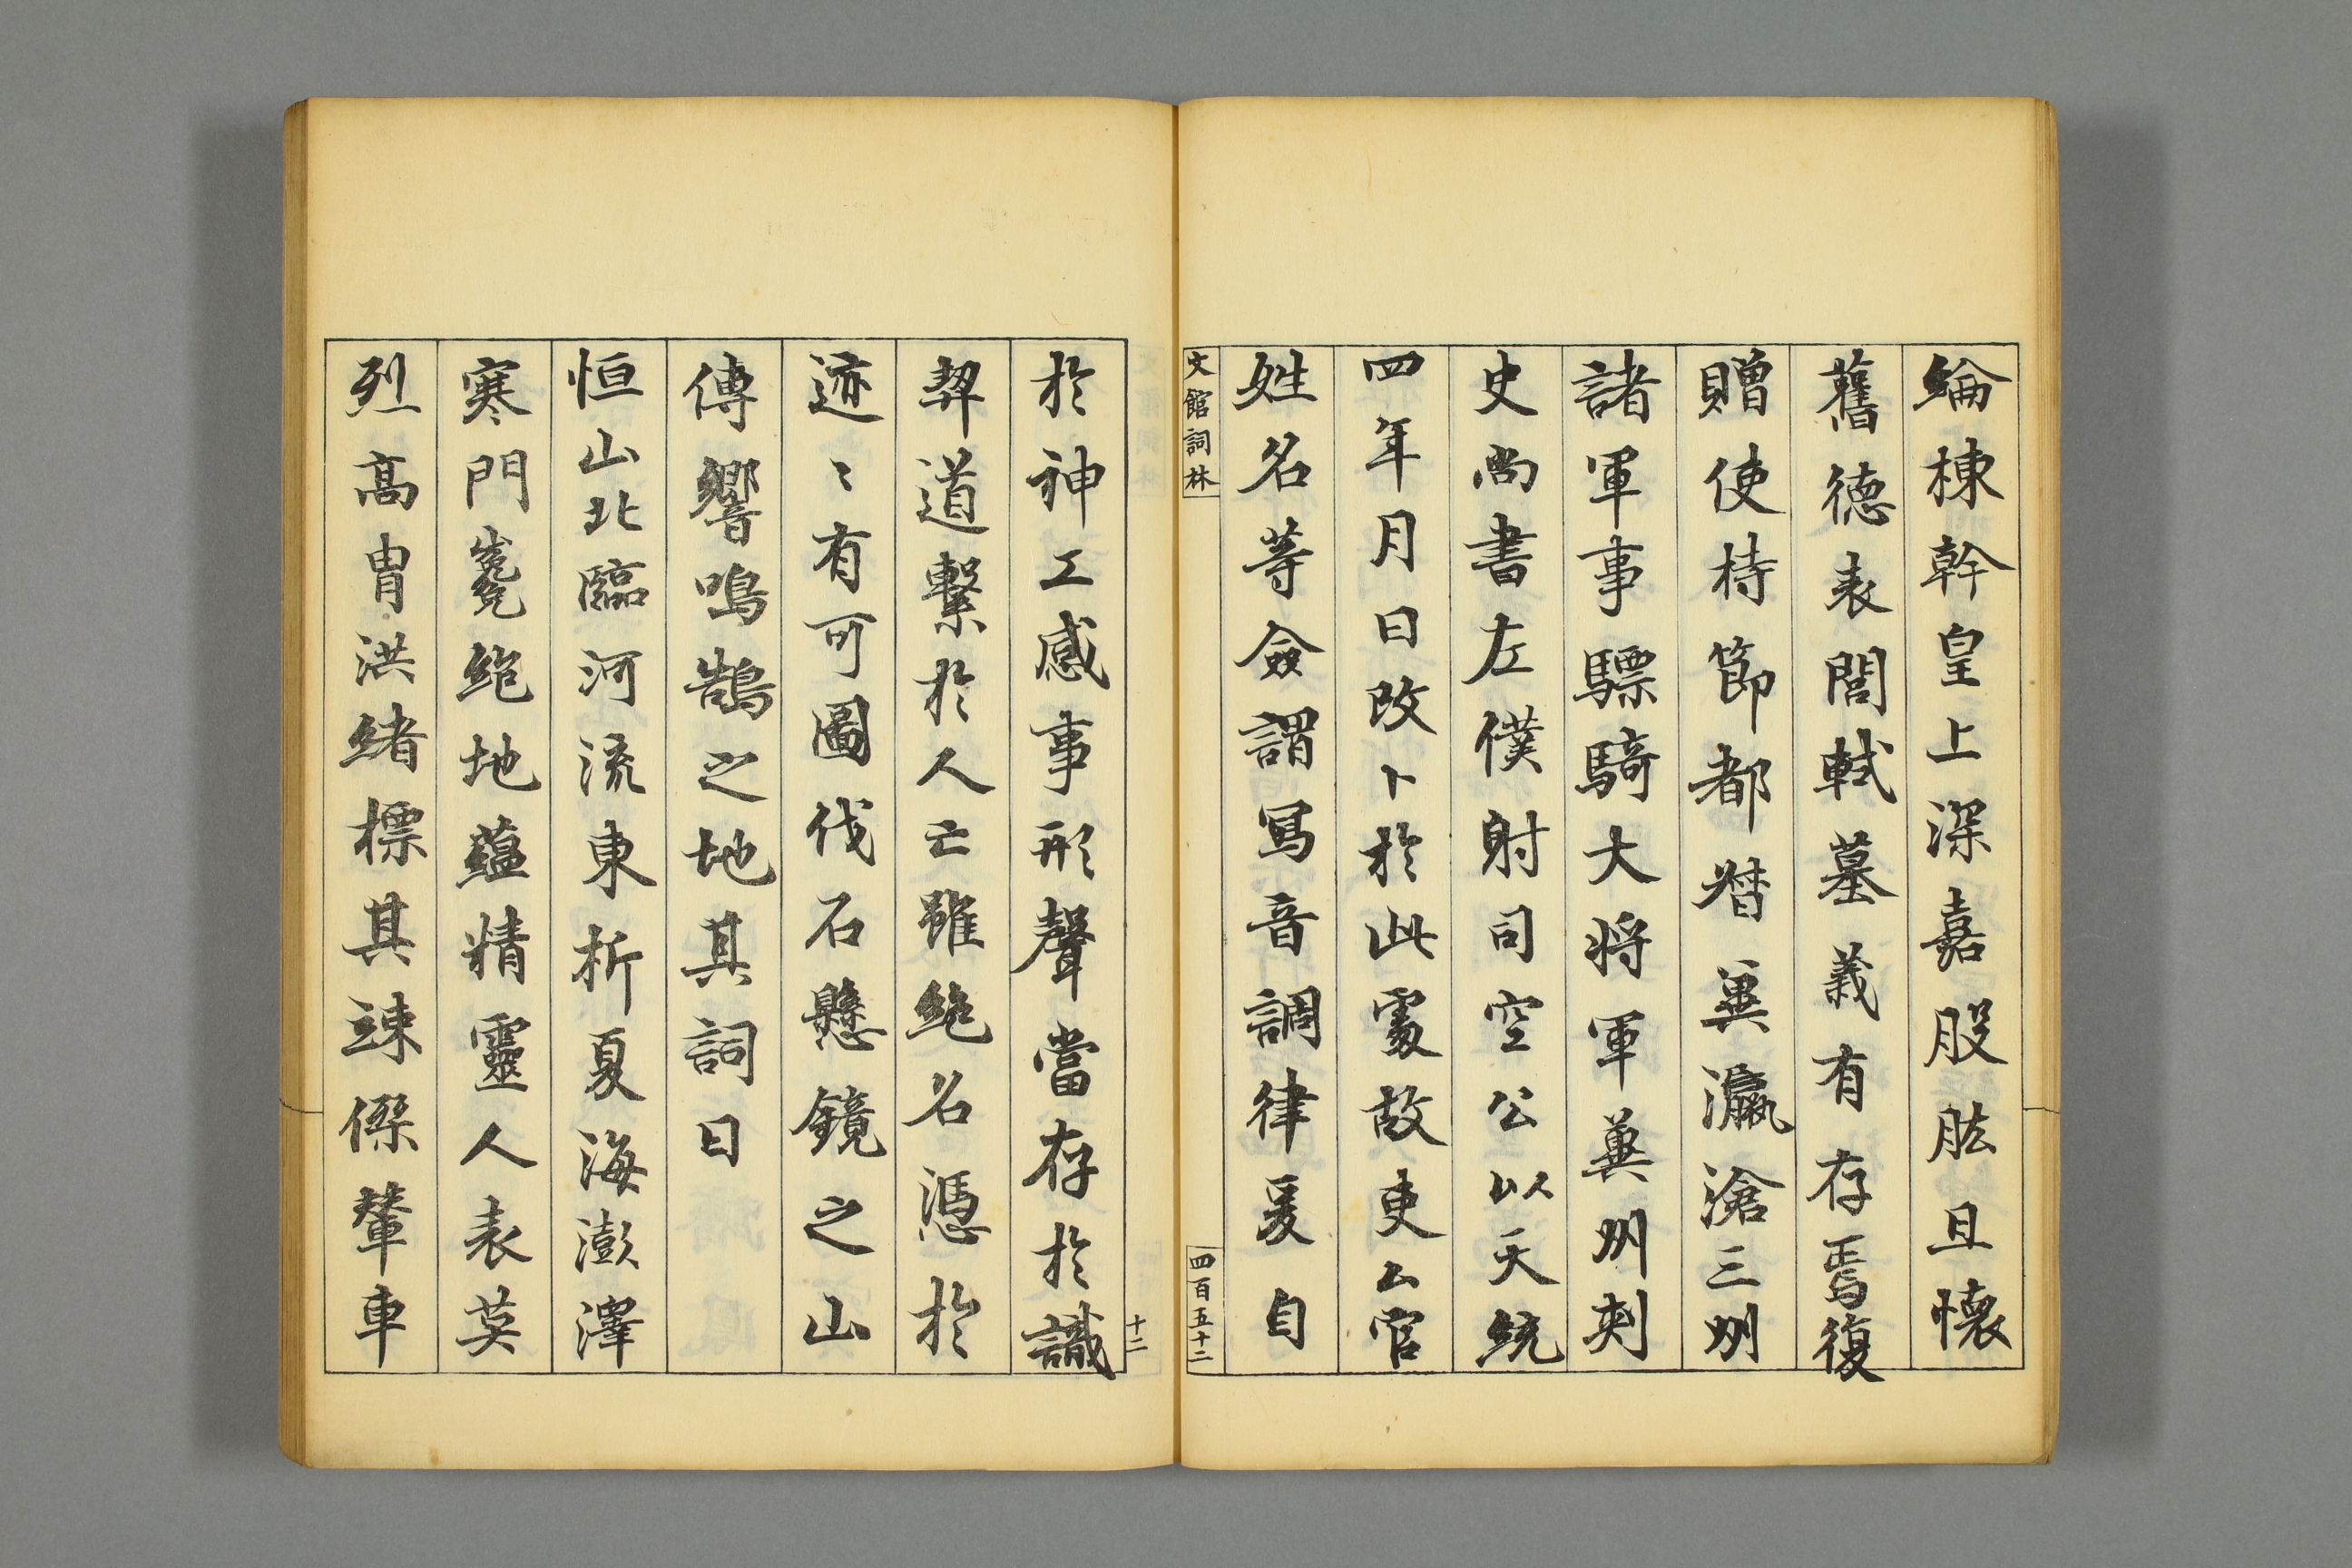 綸棟幹皇上深嘉股肱且懷
舊德表閭軾墓義有存焉復
贈使持節都督兾瀛滄三州
諸軍事驃騎大將軍兾州刺
史尚書左僕射司空公以天統
四年月日改卜於此處故吏厶官
姓名等僉謂寫音調律爰自
文館詞林
四百五十二
十二
於神工感事形聲當存於識
契道繫於人亡雖絶名憑於
迹〻有可圖伐石懸鏡之山
傳響鳴鵠之地其詞曰
恒山北臨河流東折夏海澎澤
寒門絶地蘊精靈人表英
烈高胄洪緒標其竦傑輦車